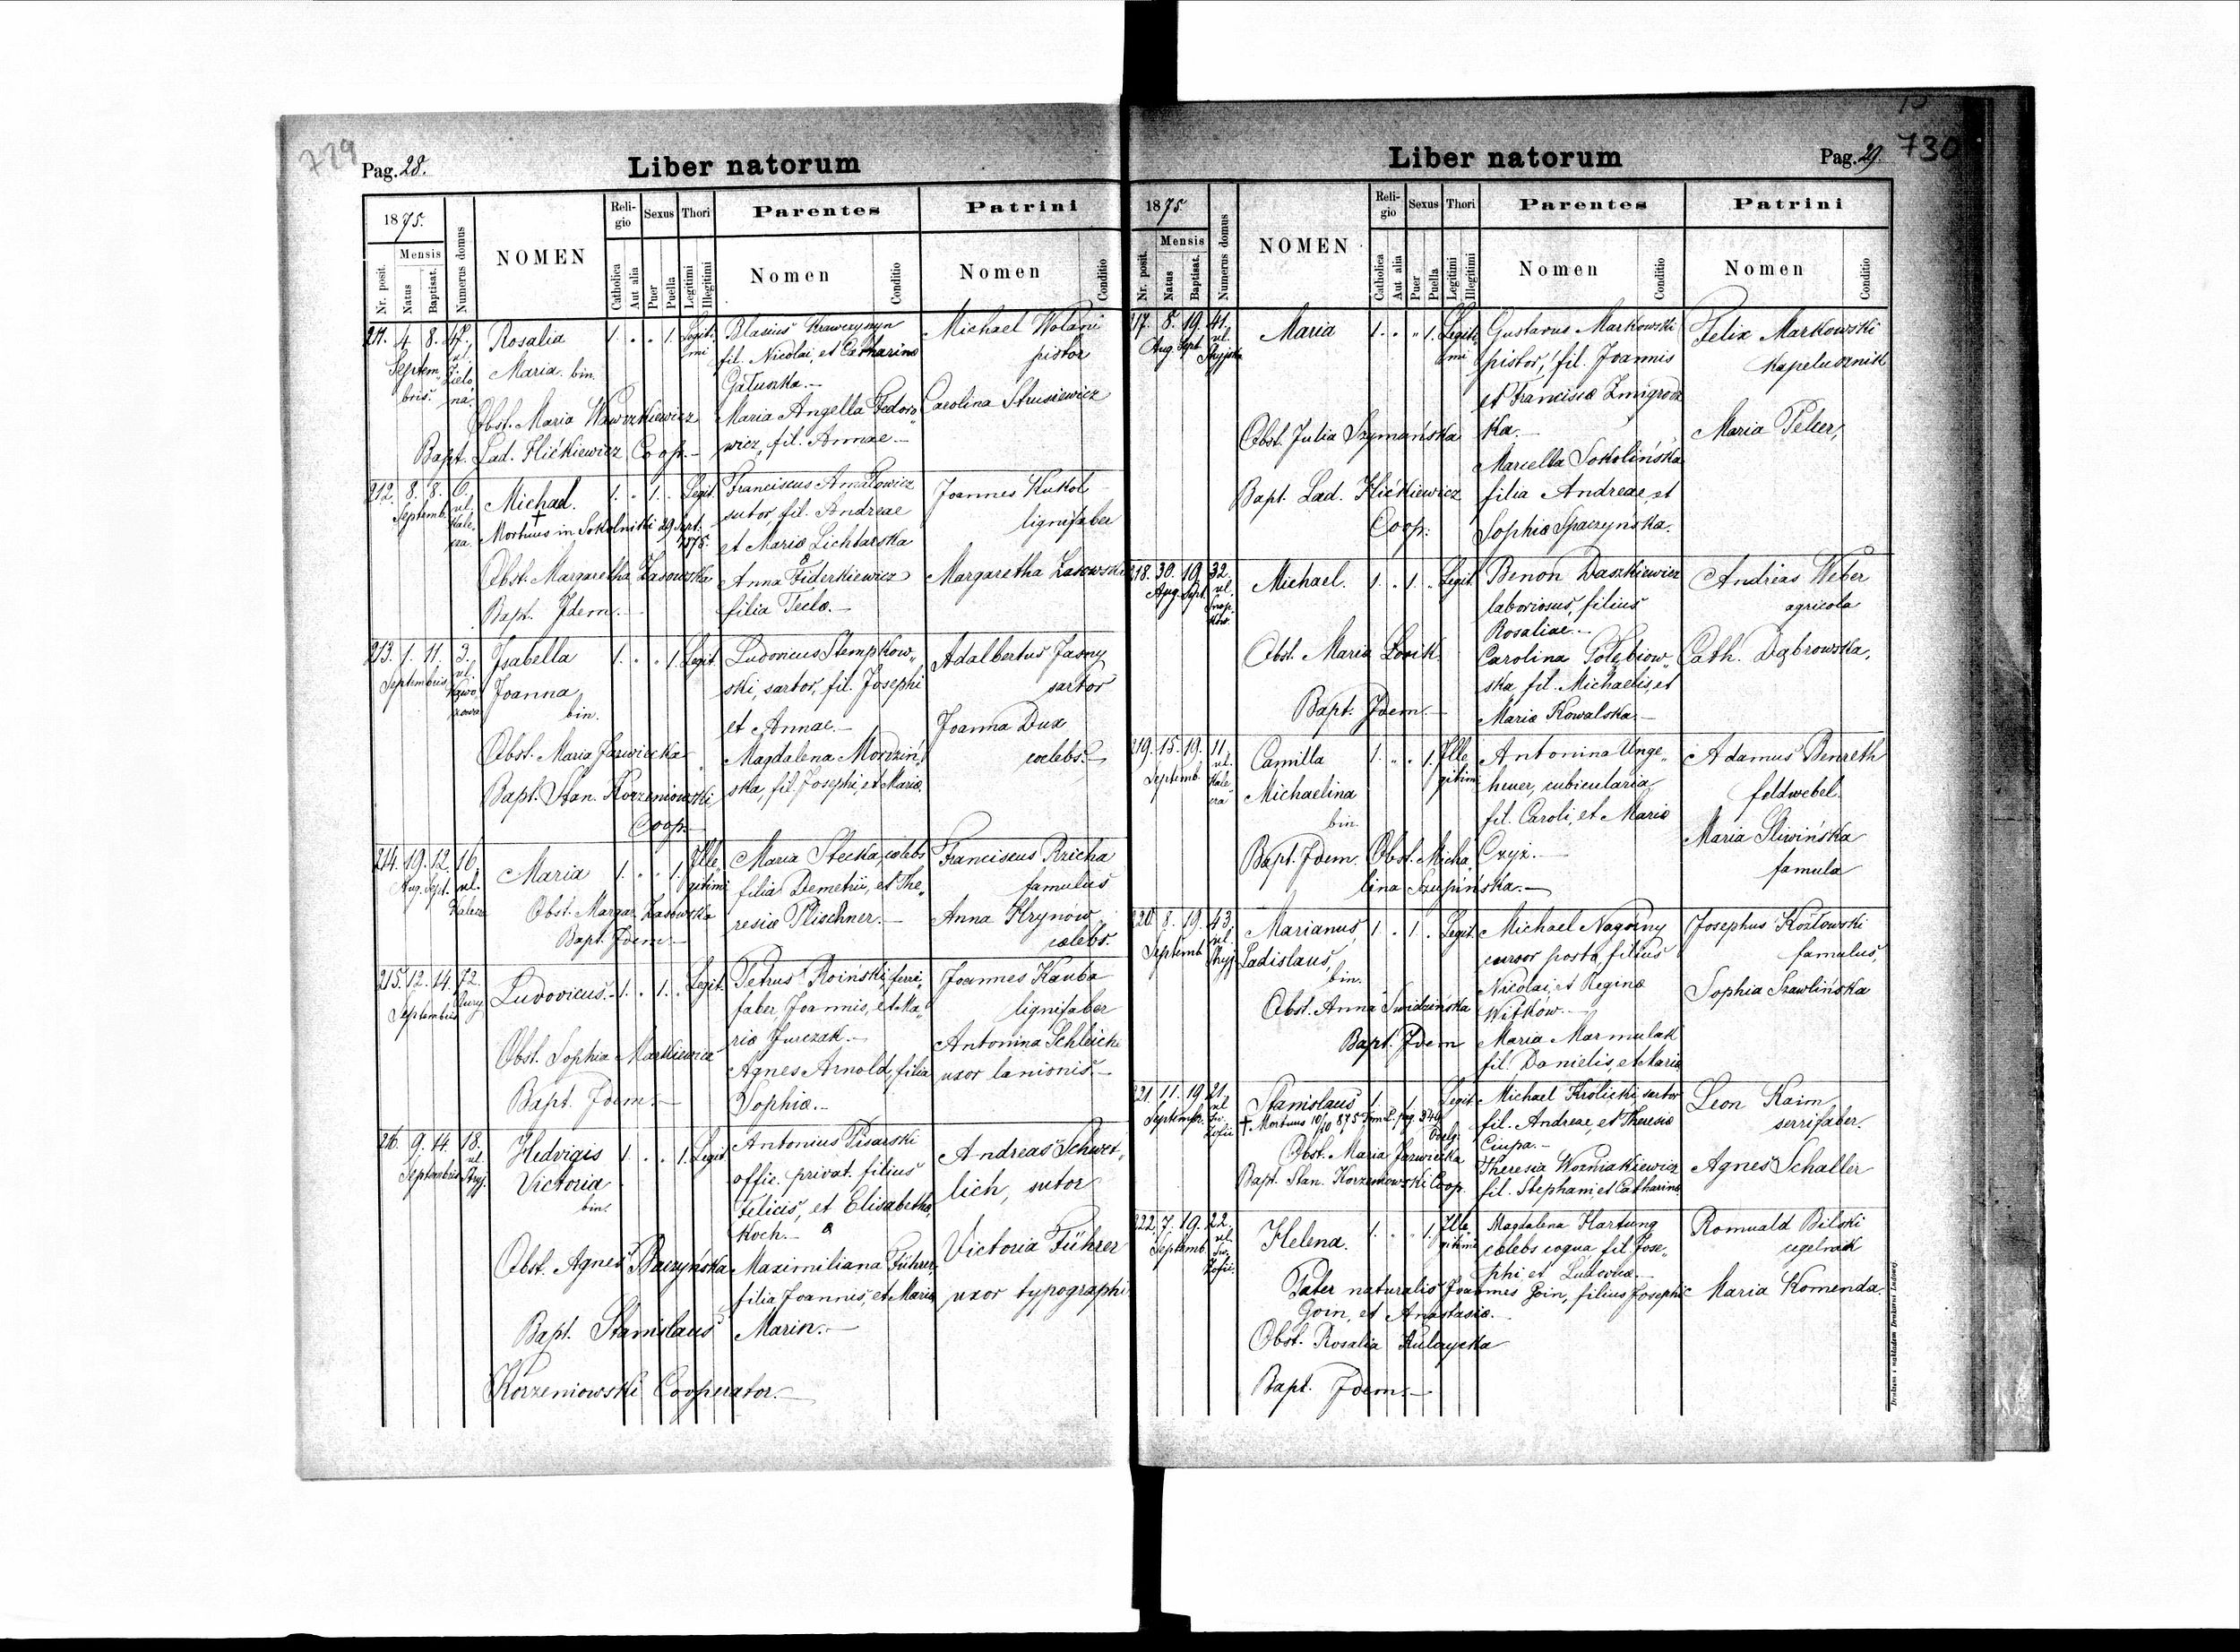 729
Pag. 28.
Liber natorum
1875.
Nr. posit.
Mensis
Natus
Baptisat.
Numerus domus
NOMEN
Religio
Catholica
Aut alia
Sexus
Puer
Puella
Thori
Legitimi
Illegitimi
Parentes
Nomen
Conditio
Patrini
Nomen
Conditio
211. 4 8. 47. Rosalia 1. " " 1. Legiti Blasius Krawczynyn Michael Wolani
Septem ul. Maria. bin. mi fil. Nicolai, et Catharina pistor
bris. Zielo na. Gałuszka.-
Obst. Maria Wawrzkiewicz Maria Angella Fedoro Carolina Strusiewicz
Bapt. Lad. Hićkiewicz Coop.- wicz, fil. Annae.-
212. 8. 8. 6. Michael. 1. " 1. " Legit. Franciscus Amałowicz Joannes Kukol
Septemb. ul. Kale cza. † Mortuus in Sokolniki 29 Sept. 1875. sutor, fil. Andreae lignifaber
et Maria Lichtarska
Obst. Margaretha Lasowska Anna Fiderkiewicz Margaretha Lasowska
Bapt. Idem.- filia Tecla.-
213. 1. 11. 3. Isabella 1. " " 1. Legit. Ludovicus Stempkow Adalbertus Jasny
Septembris ul. Joanna ski, sartor, fil. Josephi sartor
bin. et Annae.- Joanna Dux
Obst. Maria Jarwiecka Magdalena Mordziń caelebs.-
Bapt. Stan. Korzeniowski ska, fil. Josephi, et Maria
Coop.-
214. 19. 12. 16. Maria 1. " " 1. Ille Maria Stecka, caelebs Franciscus Richa
Aug. Sept. ul. gitimi filia Demetrii, et The famulus
Kalecza Obst. Margar. Lasowska resia Plischner.- Anna Hrynów
Bapt. Idem.- caelebs.
215. 12. 14. 72. Ludovicus.- 1. " 1. " Legit. Petrus Roiński, ferri Joannes Kauba
Septembris faber, Joannis, et Ma lignifaber
ria Jurczak.- Antonina Schleich
Obst. Sophia Markiewicz Agnes Arnold, filia uxor lanionis.-
Bapt. Idem.- Sophia.-
216. 9. 14. 18. Hedvigis 1. " " 1. Legit. Antonius Pisarski Andreas Schwet
Septembris ul. Stryj. Victoria offic. privat. filius lich, sutor
bin. Felicis, et Elisabetha,
Koch.-
Obst. Agnes Baczyńska Maximiliana Führer Victoria Führer
filia Joannis, et Maria uxor typographi
Bapt. Stanislaus Marin.-
Korzeniowski Cooperator.-
730
Liber natorum
Pag. 29.
1875.
Nr. posit.
Mensis
Natus
Baptisat.
Numerus domus
NOMEN
Religio
Catholica
Aut alia
Sexus
Puer
Puella
Thori
Legitimi
Illegitimi
Parentes
Nomen
Conditio
Patrini
Nomen
Conditio
217. 8. 19. 41. Maria 1. " " 1. Legiti Gustavus Markowski Felix Markowski
Aug. Sept. ul. Stryjska mi pistor, fil. Joannis kapelusznik
et Francisca Zmigrodz
Obst. Julia Szymańska ka.- Maria Peleer,
Marcella Sokolińska
Bapt. Lad. Hićkiewicz filia Andreae, et
Coop: Sophia Spaczyńska.
218. 30. 19. 32. Michael. 1. " 1. " Legit Benon Daszkiewicz Andreas Weber
Aug. Sept. ul. Snop. ków. laboriosus, filius agricola
Rosaliae.-
Obst. Maria Lovik Carolina Gołębiow Cath. Dąbrowska,
ska, fil. Michaelis, et
Bapt. Idem.- Maria Kowalska.-
219. 15. 19. 11. Camilla 1. " " 1. Ille Antonina Unge Adamus Benreth
Septemb. ul. Kale cza Michaelina gitimi heuer, cubicularia feldwebel.
bin. fil. Caroli, et Maria Maria Sliwińska
Bapt. Idem. Obst. Micha Czyż.- famula
lina Szupińska.-
220. 8. 19. 43. Marianus, 1. " 1. " Legit. Michael Nagórny Josephus Kozłowski
Septemb. ul. Stryj Ladislaus, cursor posta, filius famulus,
bin. Nicolai, et Regina Sophia Szawlińska
Obst. Anna Swidzińska Witków.-
Bapt. Idem Maria Marmulak
fil. Danielis, et Maria
221. 11. 19. 21. Stanislaus 1. 1. Legit Michael Królicki sartor Leon Kaim
Septembr. ul. Sw. Zofii † Mortuus 10/10 875 pag. fil. Andreae, et Theresia serrifaber.
Obst. Maria Jarwiecka Ciupa.-
Bapt. Stan. Korzeniowski Coop. Theresia Woźniakiewicz Agnes Schaller
fil. Stephani, et Catharina.
222. 7. 19. 22. Helena. 1. " " 1. Ille Magdalena Hartung Romuald Bilski
Septemb. ul. Sw. Zofii. gitimi caelebs coqua, fil. Jose cegelnik
phi, et Ludovica.-
Pater naturalis Joannes Goin, filius Josephi Maria Komenda.
Goin, et Anastasia.-
Obst. Rosalia Kulczycka
Bapt. Idem.-
Drukiem i nakładem Drukarni Ludowej.